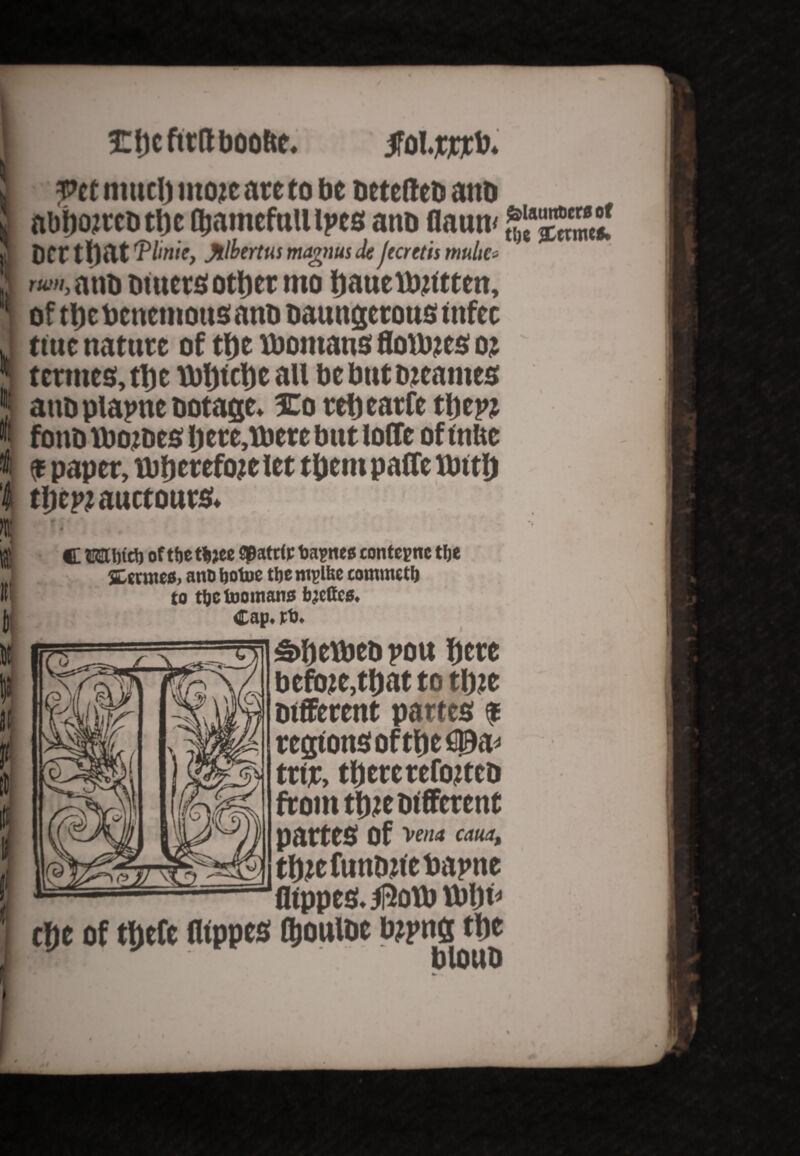 The first booke. Fol.xxxv.
Yet much more are to be detested and
abhorred the shamefull lyes and slaun-
der that Plinie, Albertus magnus de secretis mulie-
rum, and diuers other mo haue written,
of the venemous and daungerous infec
tiue nature of the womans flowres or
termes, the whiche all be but dreames
and playne dotage. To rehearse theyr
fond wordes here, were but losse of inke
& paper, wherefore let them passe with
theyr auctours.
Slaunders of
the Termes.
¶ Which of the three Matrix vaynes conteyne the
Termes, and howe the mylke commeth
to the womans brestes.
Cap. xv.
I Shewed you here
before, that to thre
different partes &
regions of the Ma-
trix, there resorted
from thre different
partes of vena caua,
thre sundrie vayne
slippes. Now whi-
che of these slippes shoulde bryng the
bloud